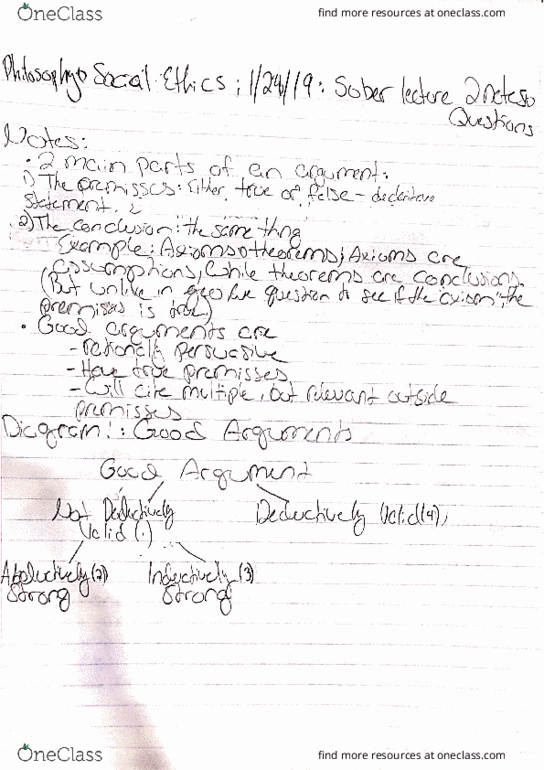 OneClass
find more resources at oneclass.com
Philosophy Social Ethics ; 1/24/19 : Sober lecture 2 notes
Questions
Notes:
• 2 main parts of an argument:
1) The premisses: Either true or false - declarative
statement
2) The conclusion: the same thing
Example: Axioms theorems; Axioms are
assumptions, while theorems are conclusions.
(But unlike in we question to see if the axiom, the
premises is true)
• Good arguments are
- rationally persuasive
- Have true premisses
- Will cite multiple, but relevant outside
premisses
Diagram!: Good Arguments
Good Argument
Not Deductively Deductively Valid (4)
Valid (1)
Abductively (2) Inductively (3)
Strong Strong
OneClass
find more resources at oneclass.com